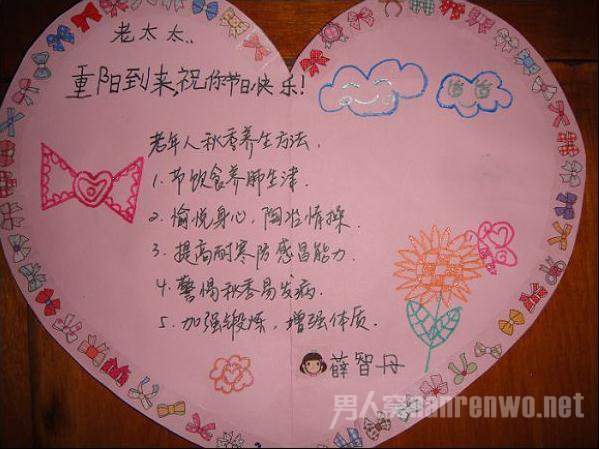 老太太：
重阳到来，祝你节日快乐！
老年人秋季养生方法.
1. 节饮食养肺生津.
2. 愉悦身心，陶冶情操.
3. 提高耐寒防感冒能力.
4. 警惕秋季易发病.
5. 加强锻炼，增强体质.
薛智丹
男人窝nanrenwo.net